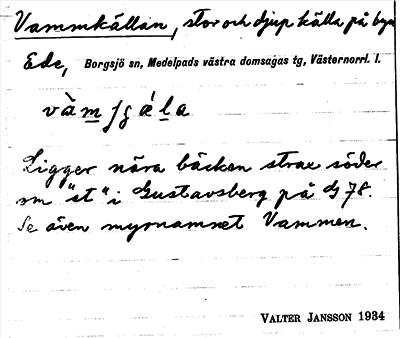 Vammkällan, stor och djup källa på byn
Ede, Borgsjö sn, Medelpads västra domsagas tg, Västernorrl. l.
Ligger nära bäcken strax söder
om "st" i Gustavsberg på G 78.
Se även myrnamnet Vammen.
VALTER JANSSON 1934